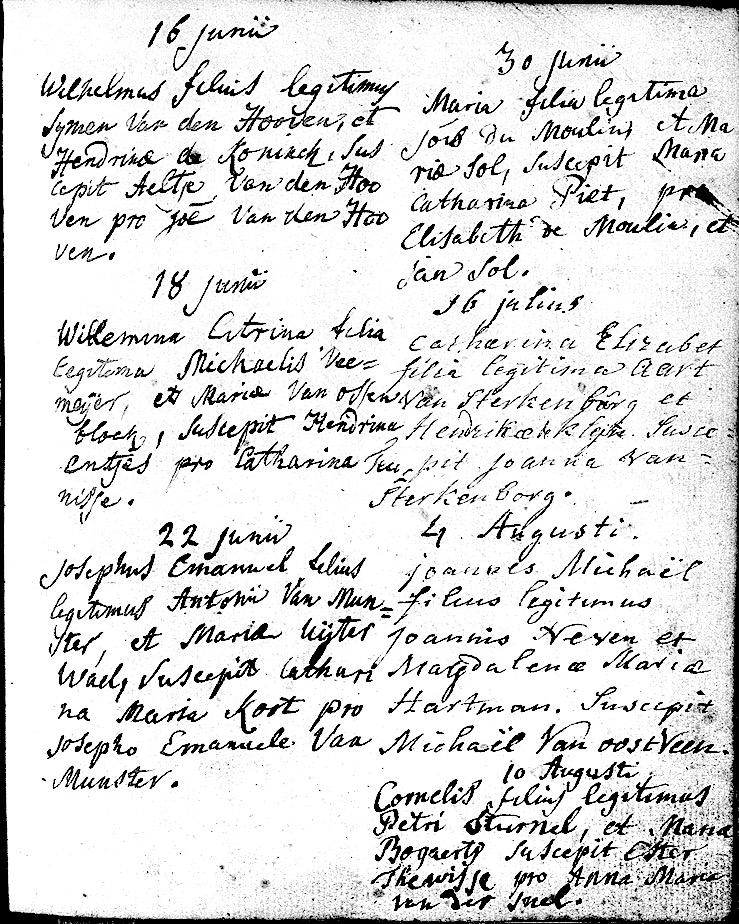 16 junii
Wilhelmus filius legitimus
Symen Van den Hooven, et
Hendrinæ de Koninck, Sus
cepit Aeltje Van den Hoo
ven pro joē Van den Hoo
ven.
18 junii
Willemina Catrina filia
legitima Michaelis Vee=
meijer, et Mariæ Van ossen
block, Suscepit Hendrina
entjes pro Catharina
nisse.
22 junii
Josephus Emanuel filius
legitimus Antonii Van Mun=
ster, et Mariæ Uijter
Wael, Suscepit Cathari
na Maria Kort pro
Josepho Emanuele Van
Munster.
30 junii
Maria filia legitima
Jois du Moulin, et Ma
riæ Sol, Suscepit Maria
Catharina Piet, pro
Elisabeth de Moulin, et
jan Sol.
16 julius
Catharina Elizabet
filia legitima Aart
Van Sterkenbürg et
Susce=
pit joanna Van=
Sterkenborg.
4 Augusti.
joannes Michaël
filius legitimus
joannis Neven et
Magdalenæ Mariæ
Hartman. Suscepit
Michaël Van oostveen.
10 Augusti
Cornelis filius legitimus
Petri Sturnel, et Maria
Bogaerts Suscepit Ester
Thewisse pro Anna Maria
van der Snel.